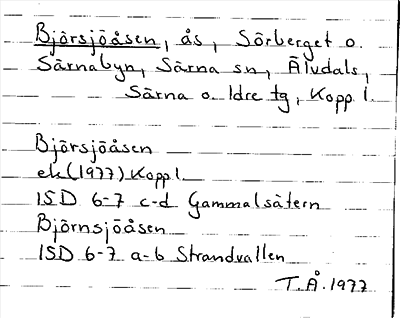 Björsjöåsen, ås, Sörberget o.
Särnabyn, Särna sn, Älvdals,
Särna o. Idre tg, Kopp l.
Björsjöåsen
ek(1977) Kopp l.
ISD 6-7 c-d Gammalsätern
Björnsjöåsen
ISD 6-7 a-b Strandvallen
T.Å.1977